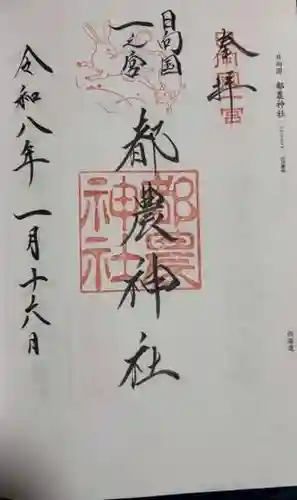 日向国 都農神社
奉拝
日向国
一之宮
都農神社
都農神社
令和八年 一月十六日
西海道